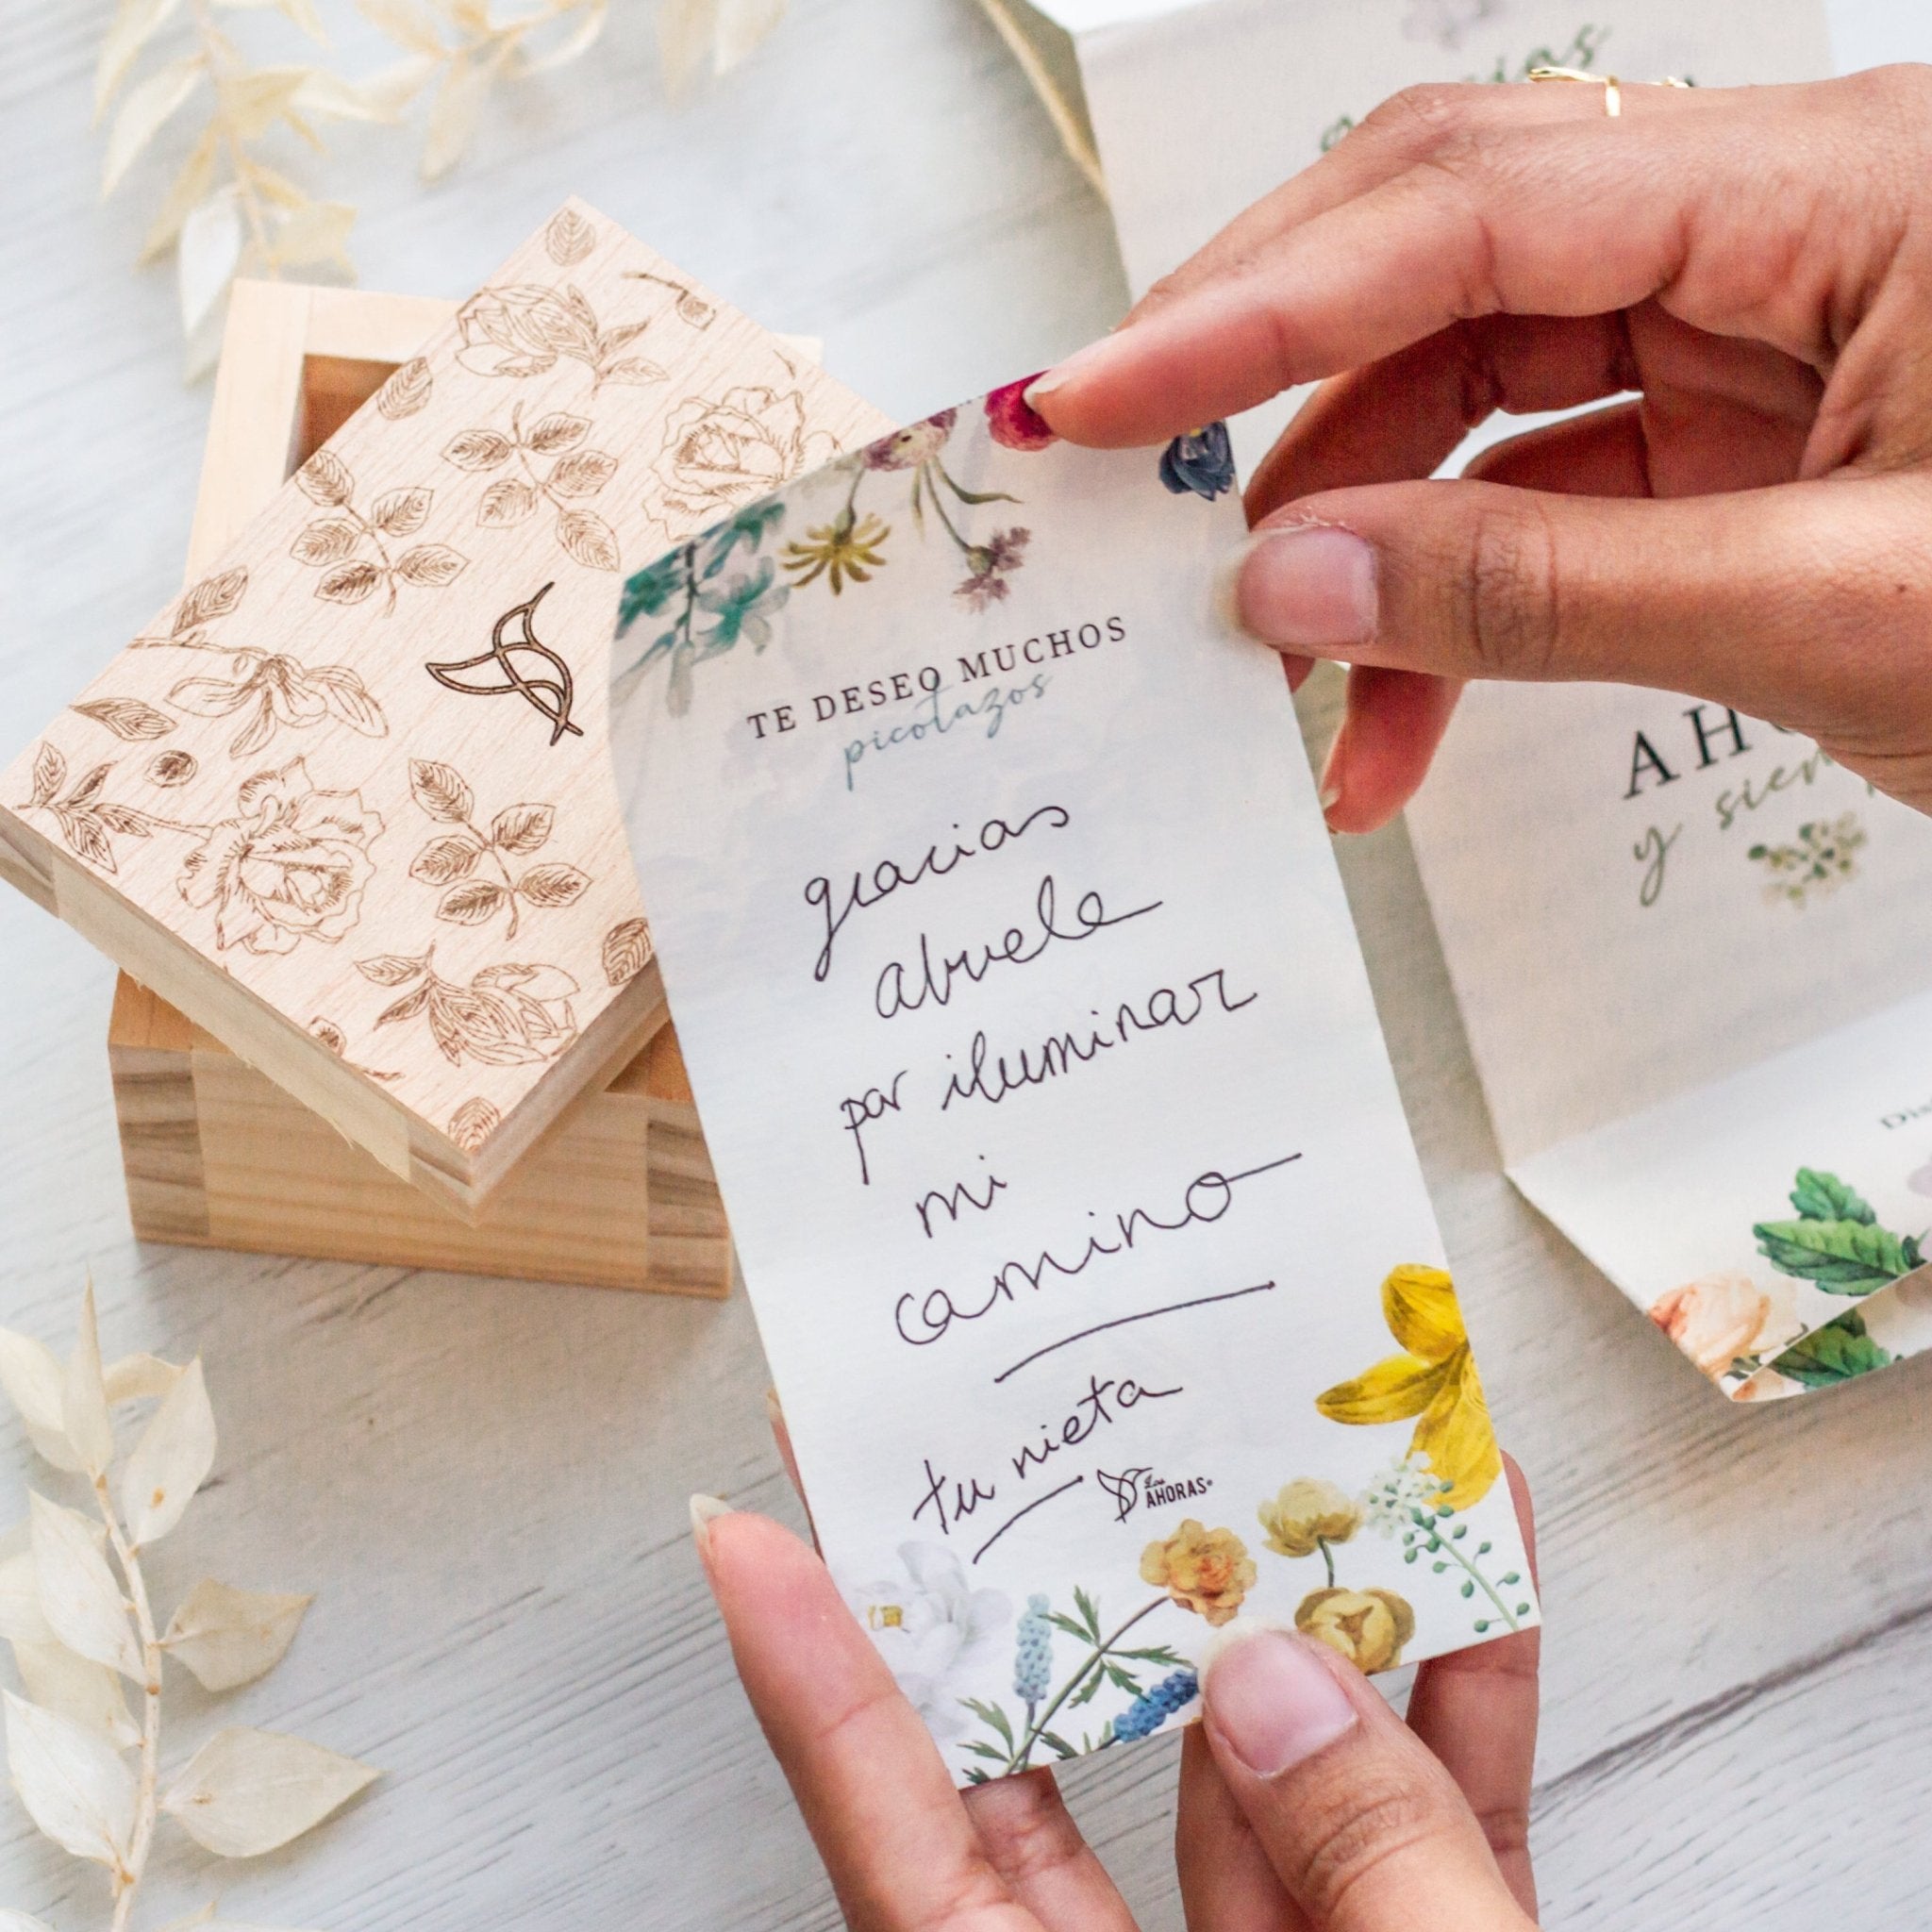 TE DESEO MUCHOS
picotazos
gracias
abuela
por iluminar
mi
camino
tu nieta
Los
AHORAS